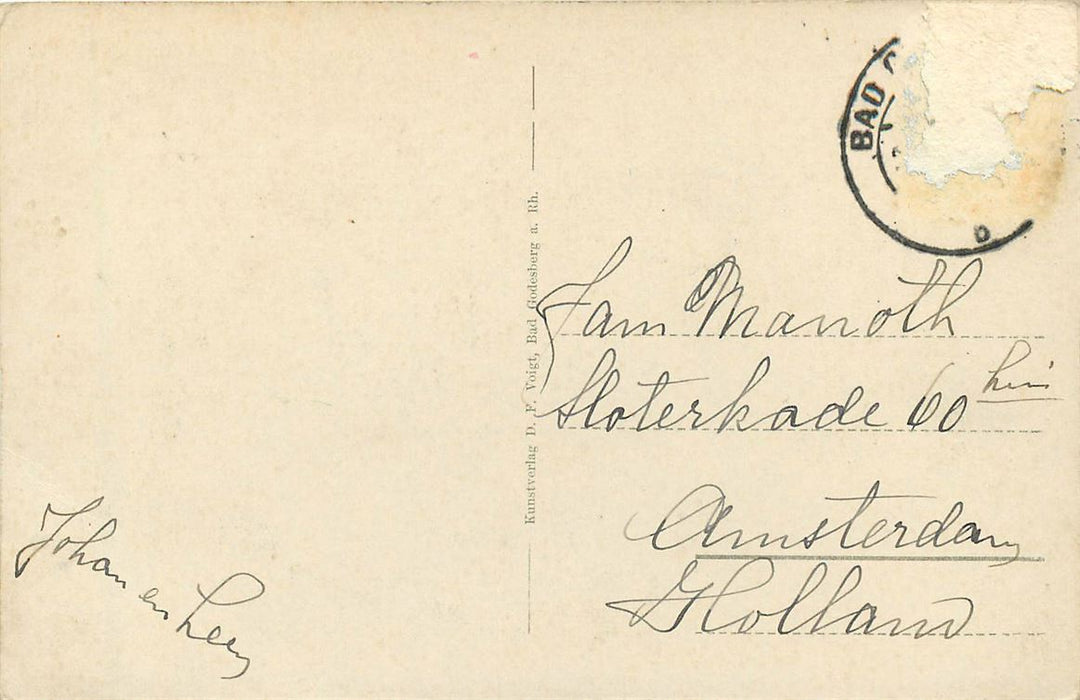 BAD
D
Kunstverlag D. F. Voigt, Bad Godesberg a. Rh.
Fam Manoth
Sloterkade 60 huis
Amsterdam
Holland
Johan en Leen